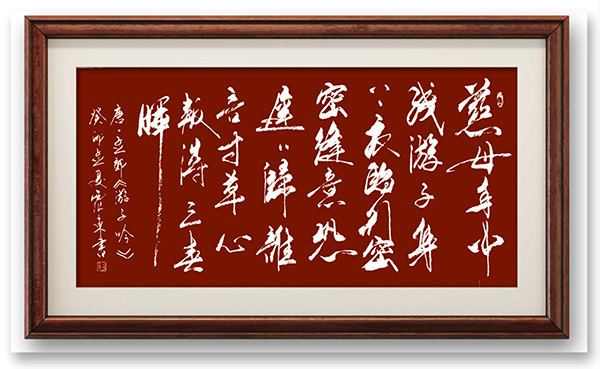 慈母手中
线游子身
上衣临行密
密缝意恐
遲〻歸誰
言寸草心
報得三春
暉
唐·孟郊《游子吟》
癸卯孟夏 書